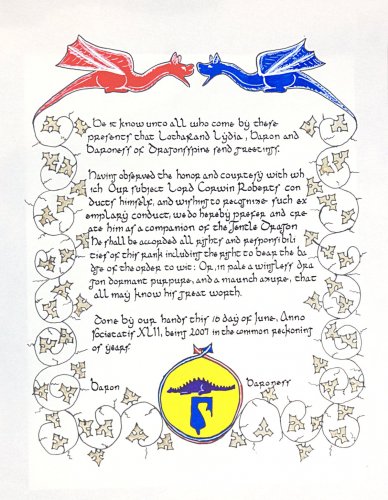 Be it know unto all who come by these
presents that Lothar and Lydia, Baron and
Baroness of Dragonsspine send greetings.
Having observed the honor and courtesy with wh
ich Our subject Lord Corwin Roberts con
ducts himself, and wishing to recognize such ex
emplary conduct, we do hereby prefer and cre
ate him as a companion of the Gentle Dragon
He shall be accorded all rights and responsibili
ties of this rank including the right to bear the ba
dge of the order to wit: Or, in pale a wingless dra
gon dormant purpure, and a maunch azure, that
all may know his great worth.
Done by our hands this 16 day of June, Anno
Societatis XLII, being 2007 in the common reckoning
of years.
Baron
Baroness